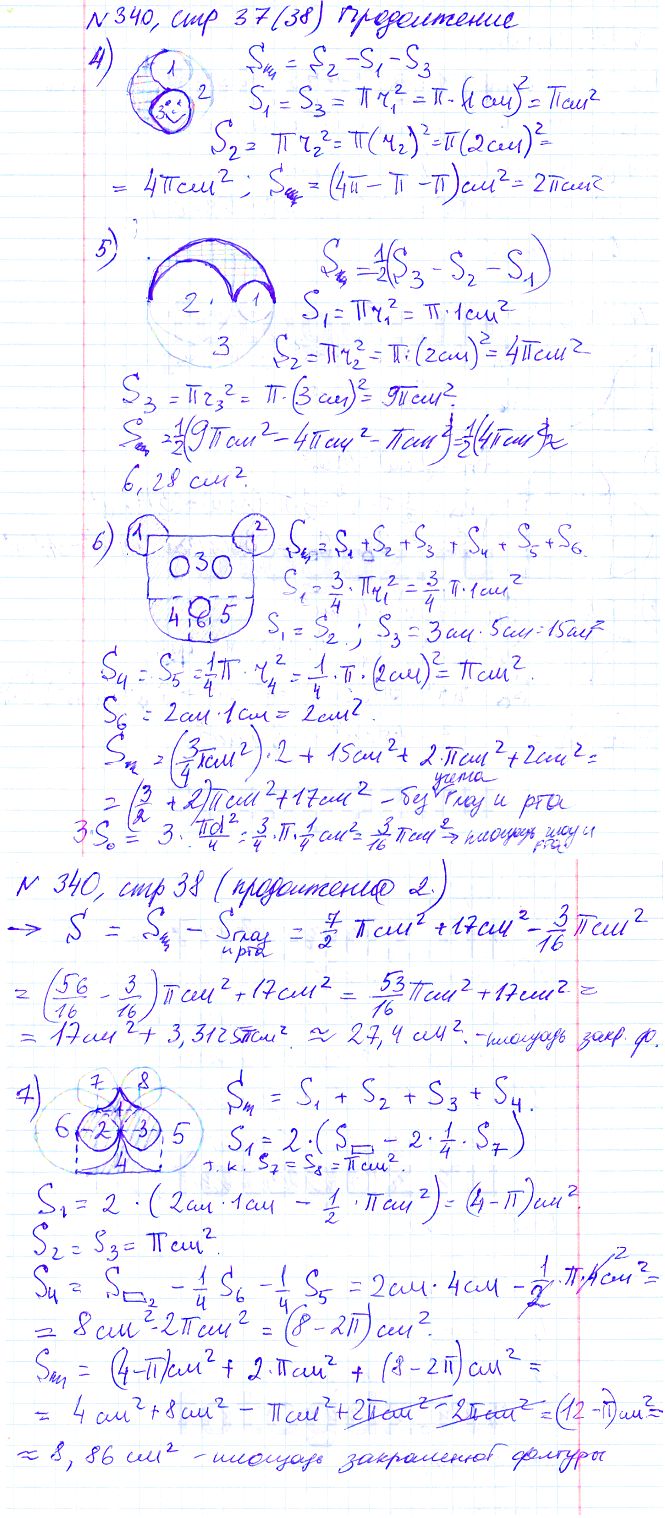 №340, стр 37(38) Продолжение
4) 1 2 3 Sш = S2 - S1 - S3
S1 = S3 = πr1² = π·(1см)² = πсм²
S2 = πr2² = π(r2)² = π(2см)² =
= 4πсм²; Sш = (4π - π - π)см² = 2πсм²
5) Sш = 1/2(S3 - S2 - S1)
2 1 S1 = πr1² = π·1см²
3 S2 = πr2² = π·(2см)² = 4πсм²
S3 = πr3² = π·(3см)² = 9πсм².
Sш = 1/2(9πсм² - 4πсм² - πсм²) = 1/2(4πсм²) ≈
6,28 см².
6) 1 2 3 4 6 5 Sш = S1 + S2 + S3 + S4 + S5 + S6.
S1 = 3/4·πr1² = 3/4·π·1см²
S1 = S2; S3 = 3см·5см = 15см²
S4 = S5 = 1/4π·r4² = 1/4·π·(2см)² = πсм².
S6 = 2см·1см = 2см².
Sш = (3/4πсм²)·2 + 15см² + 2·πсм² + 2см² =
= (3/2 + 2)πсм² + 17см² - без учета глаз и рта
3·S0 = 3·πd²/4 = 3/4·π·1/4см² = 3/16πсм² → площадь глаз и рта
№ 340, стр 38 (продолжение 2)
→ S = Sш - Sглаз и рта = 7/2 πсм² + 17см² - 3/16πсм²
= (56/16 - 3/16)πсм² + 17см² = 53/16πсм² + 17см² =
= 17см² + 3,3125πсм² ≈ 27,4 см². - площадь закр. ф.
7) 7 8 1 6 2 3 5 4 Sш = S1 + S2 + S3 + S4.
S1 = 2·(S▭ - 2·1/4·S7)
т.к. S7 = S8 = πсм².
S1 = 2·(2см·1см - 1/2·πсм²) = (4-π)см².
S2 = S3 = πсм².
S4 = S▭2 - 1/4S6 - 1/4S5 = 2см·4см - 1/2·π·4см² =
= 8см² - 2πсм² = (8 - 2π)см².
Sш = (4-π)см² + 2·πсм² + (8-2π)см² =
= 4см² + 8см² - πсм² + 2πсм² - 2πсм² = (12-π)см² =
≈ 8,86 см² - площадь закрашенной фигуры